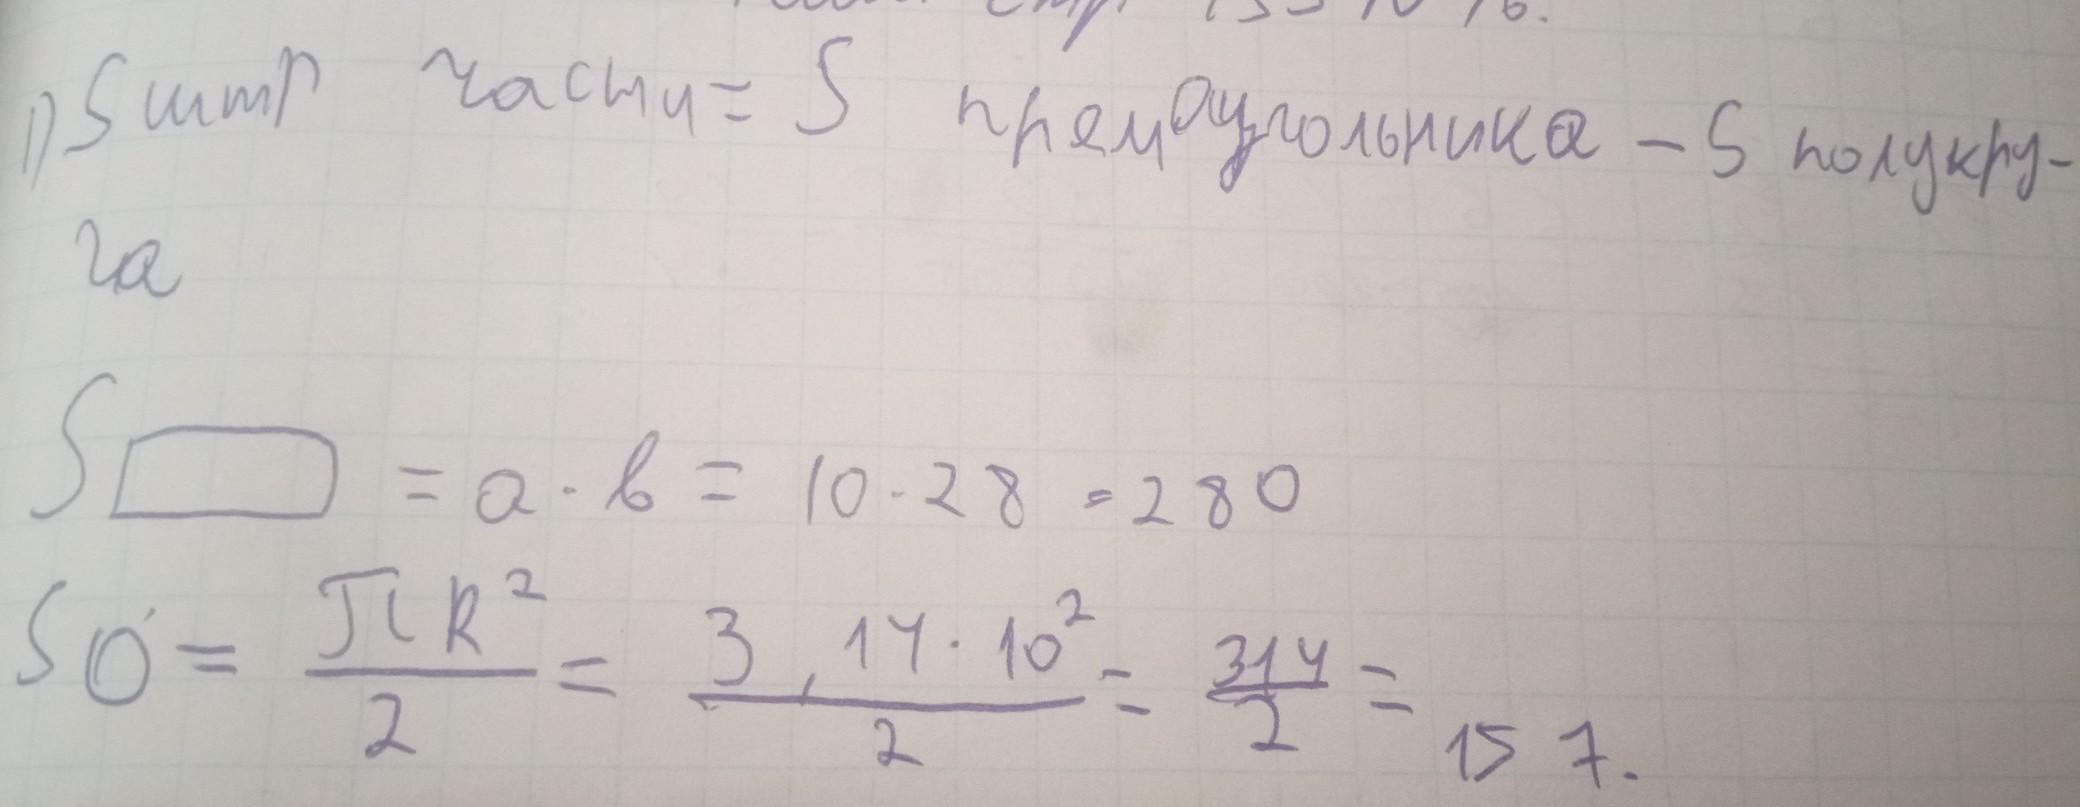 стр 155 N 16.
1) S штр части = S прямоугольника - S полукру-
га
S▭ = a · b = 10 · 28 = 280
S O = πR²/2 = 3,14 · 10²/2 = 314/2 = 157.